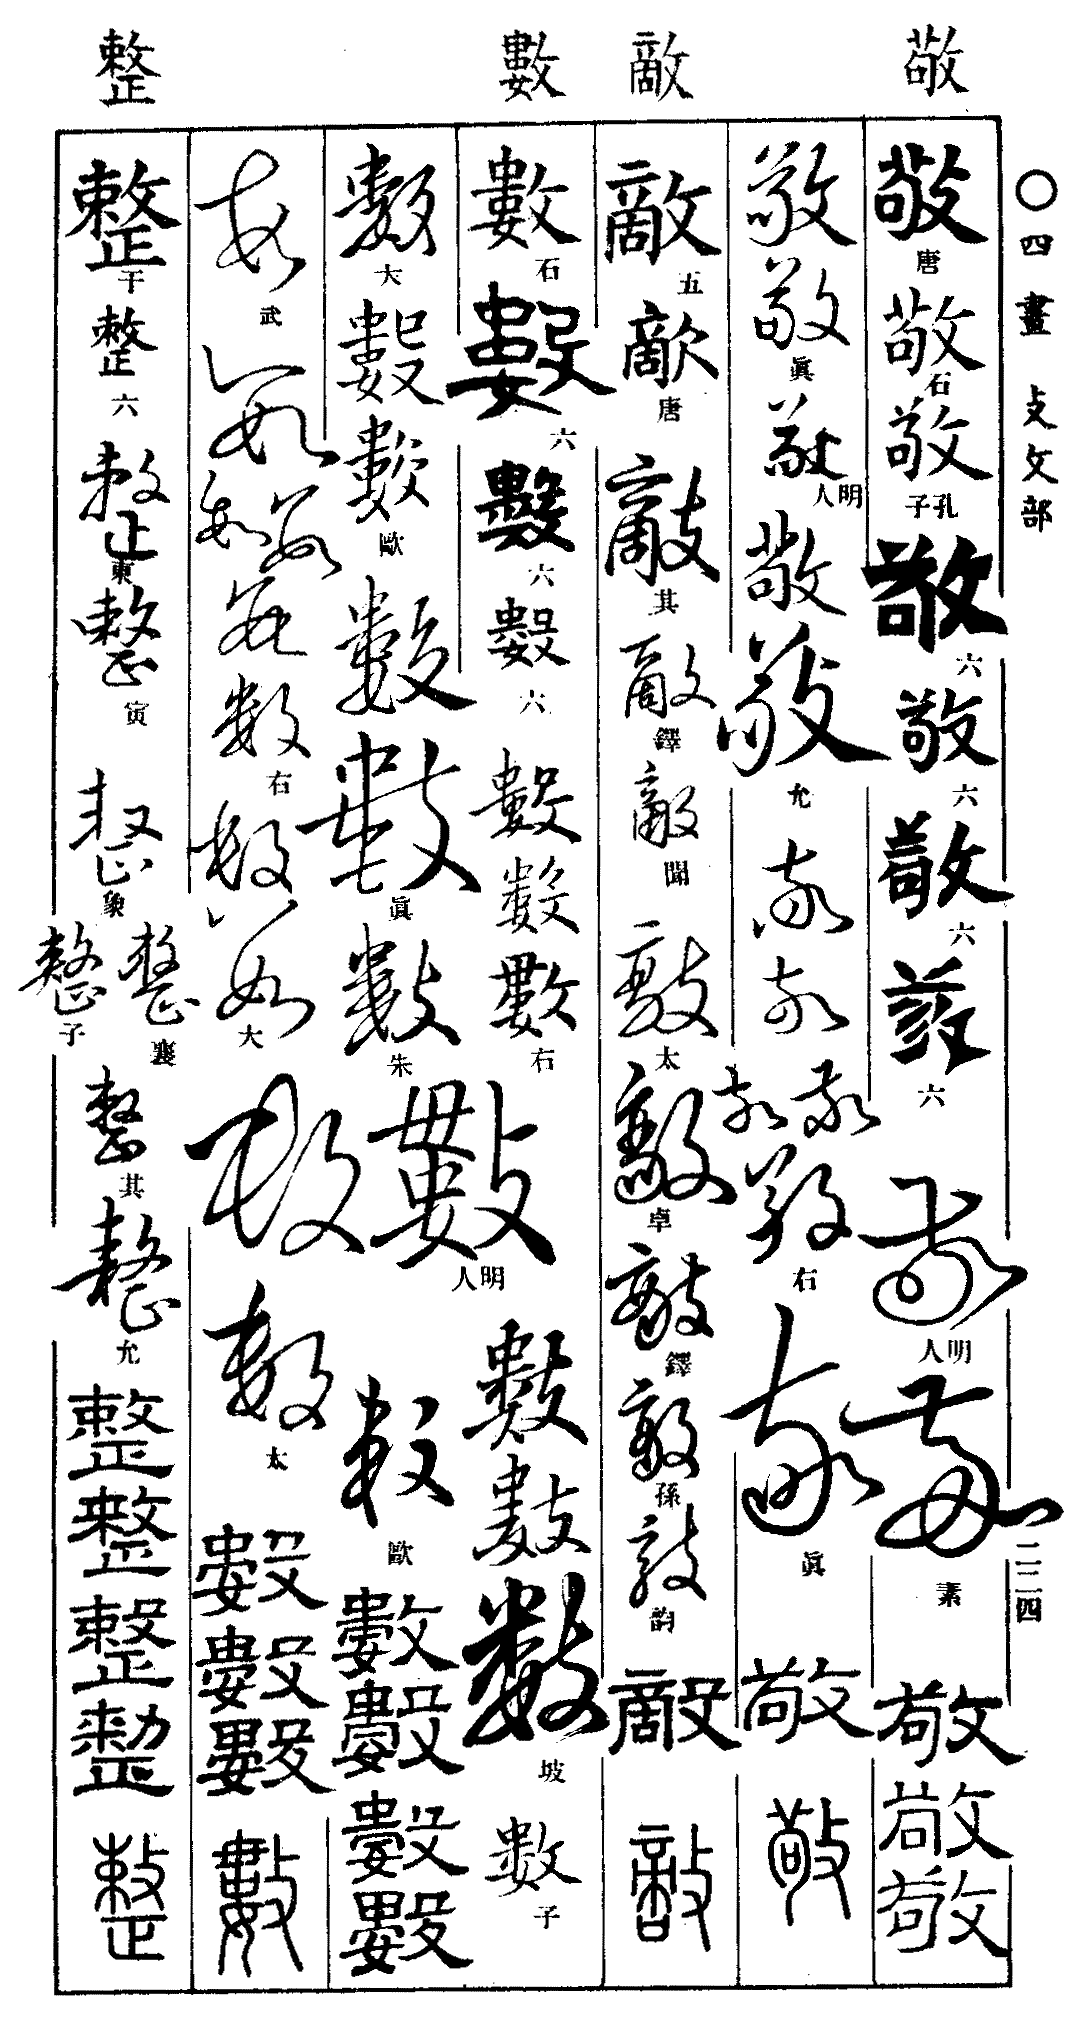 敬
敵
數
整
〇四畫 攴攵部
二二四
敬
唐
敬
石
敬
孔子
敬
六
敬
六
敬
六
敬
六
敬
明人
敬
素
敬
敬
敬
敬
敬
眞
敬
明人
敬
敬
允
敬
敬
敬
敬
敬
右
敬
眞
敬
敬
敵
五
敵
唐
敵
其
敵
鐸
敵
聞
敵
太
敵
卓
敵
鐸
敵
孫
敵
韵
敵
敵
數
石
數
六
數
六
數
六
數
數
數
右
數
明人
數
數
數
坡
數
子
數
大
數
數
歐
數
數
眞
數
朱
數
歐
數
數
數
數
數
武
數
數
數
數
數
右
數
數
大
數
數
太
數
數
數
數
整
千
整
六
整
東
整
寅
整
象
整
襄
整
子
整
其
整
允
整
整
整
整
整